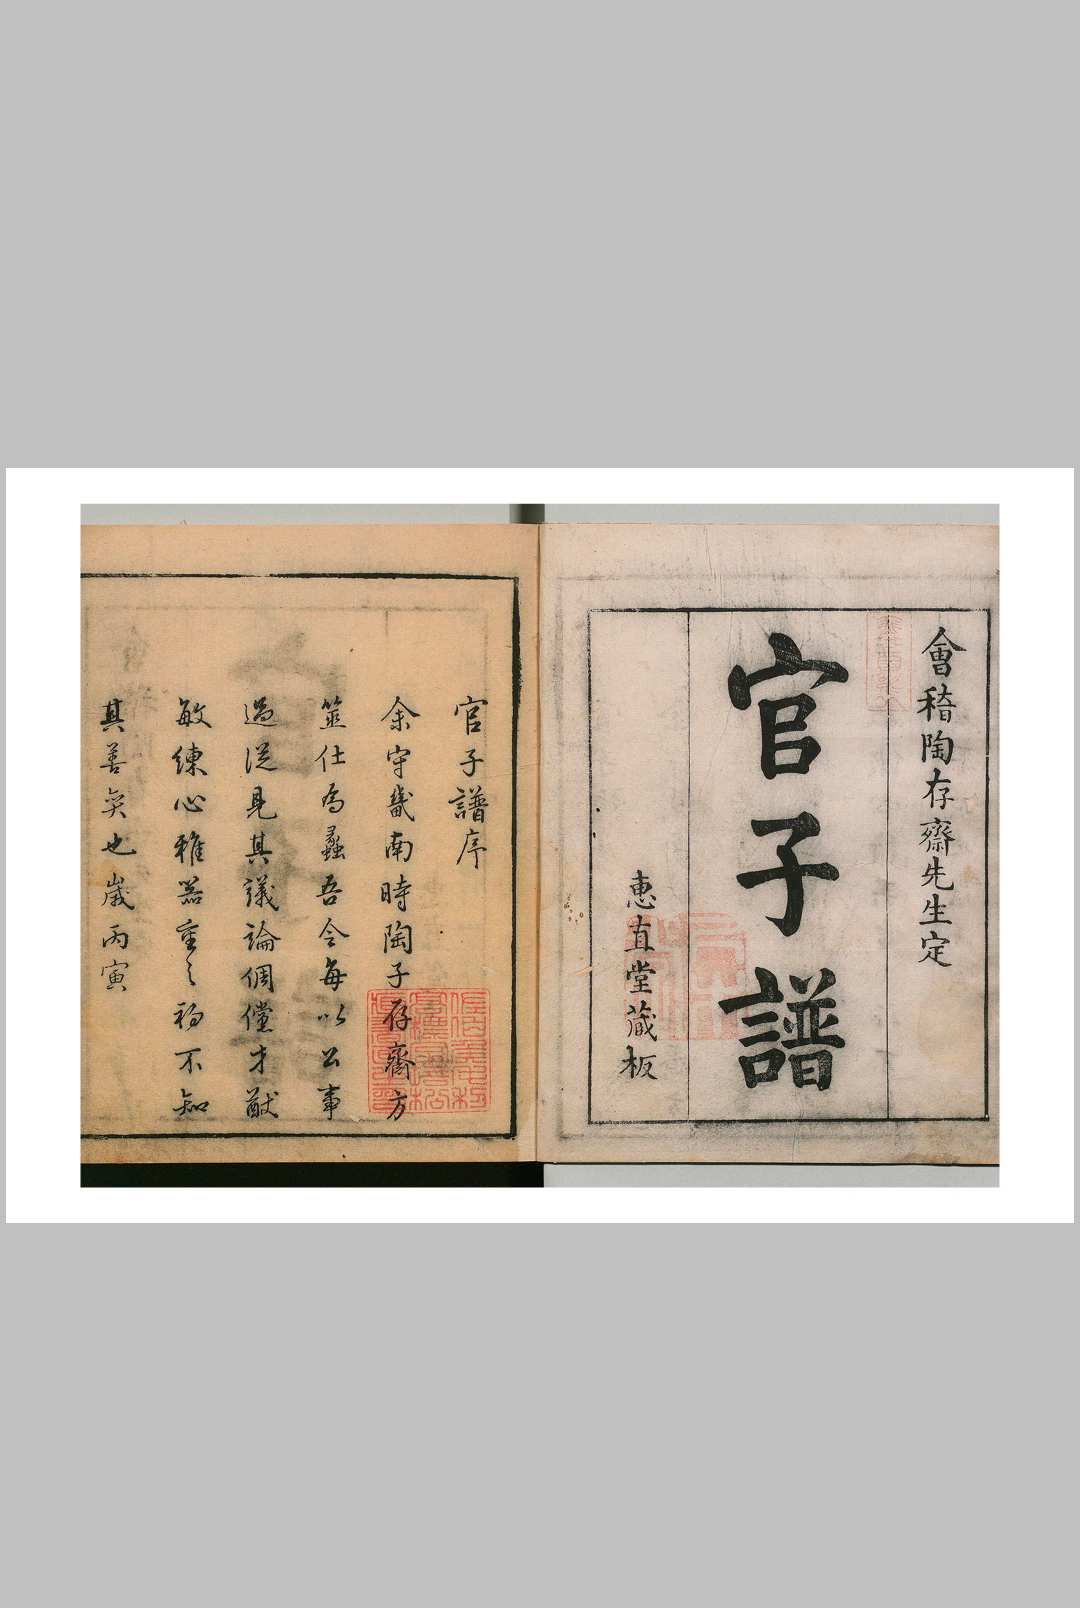 會稽陶存齋先生定
官子譜
惠直堂藏板
官子譜序
余守畿南時陶子存齋方
筮仕為蠡吾令每以公事
過從見其議論倜儻才猷
敏練心雅器重之初不知
其善奕也歲丙寅